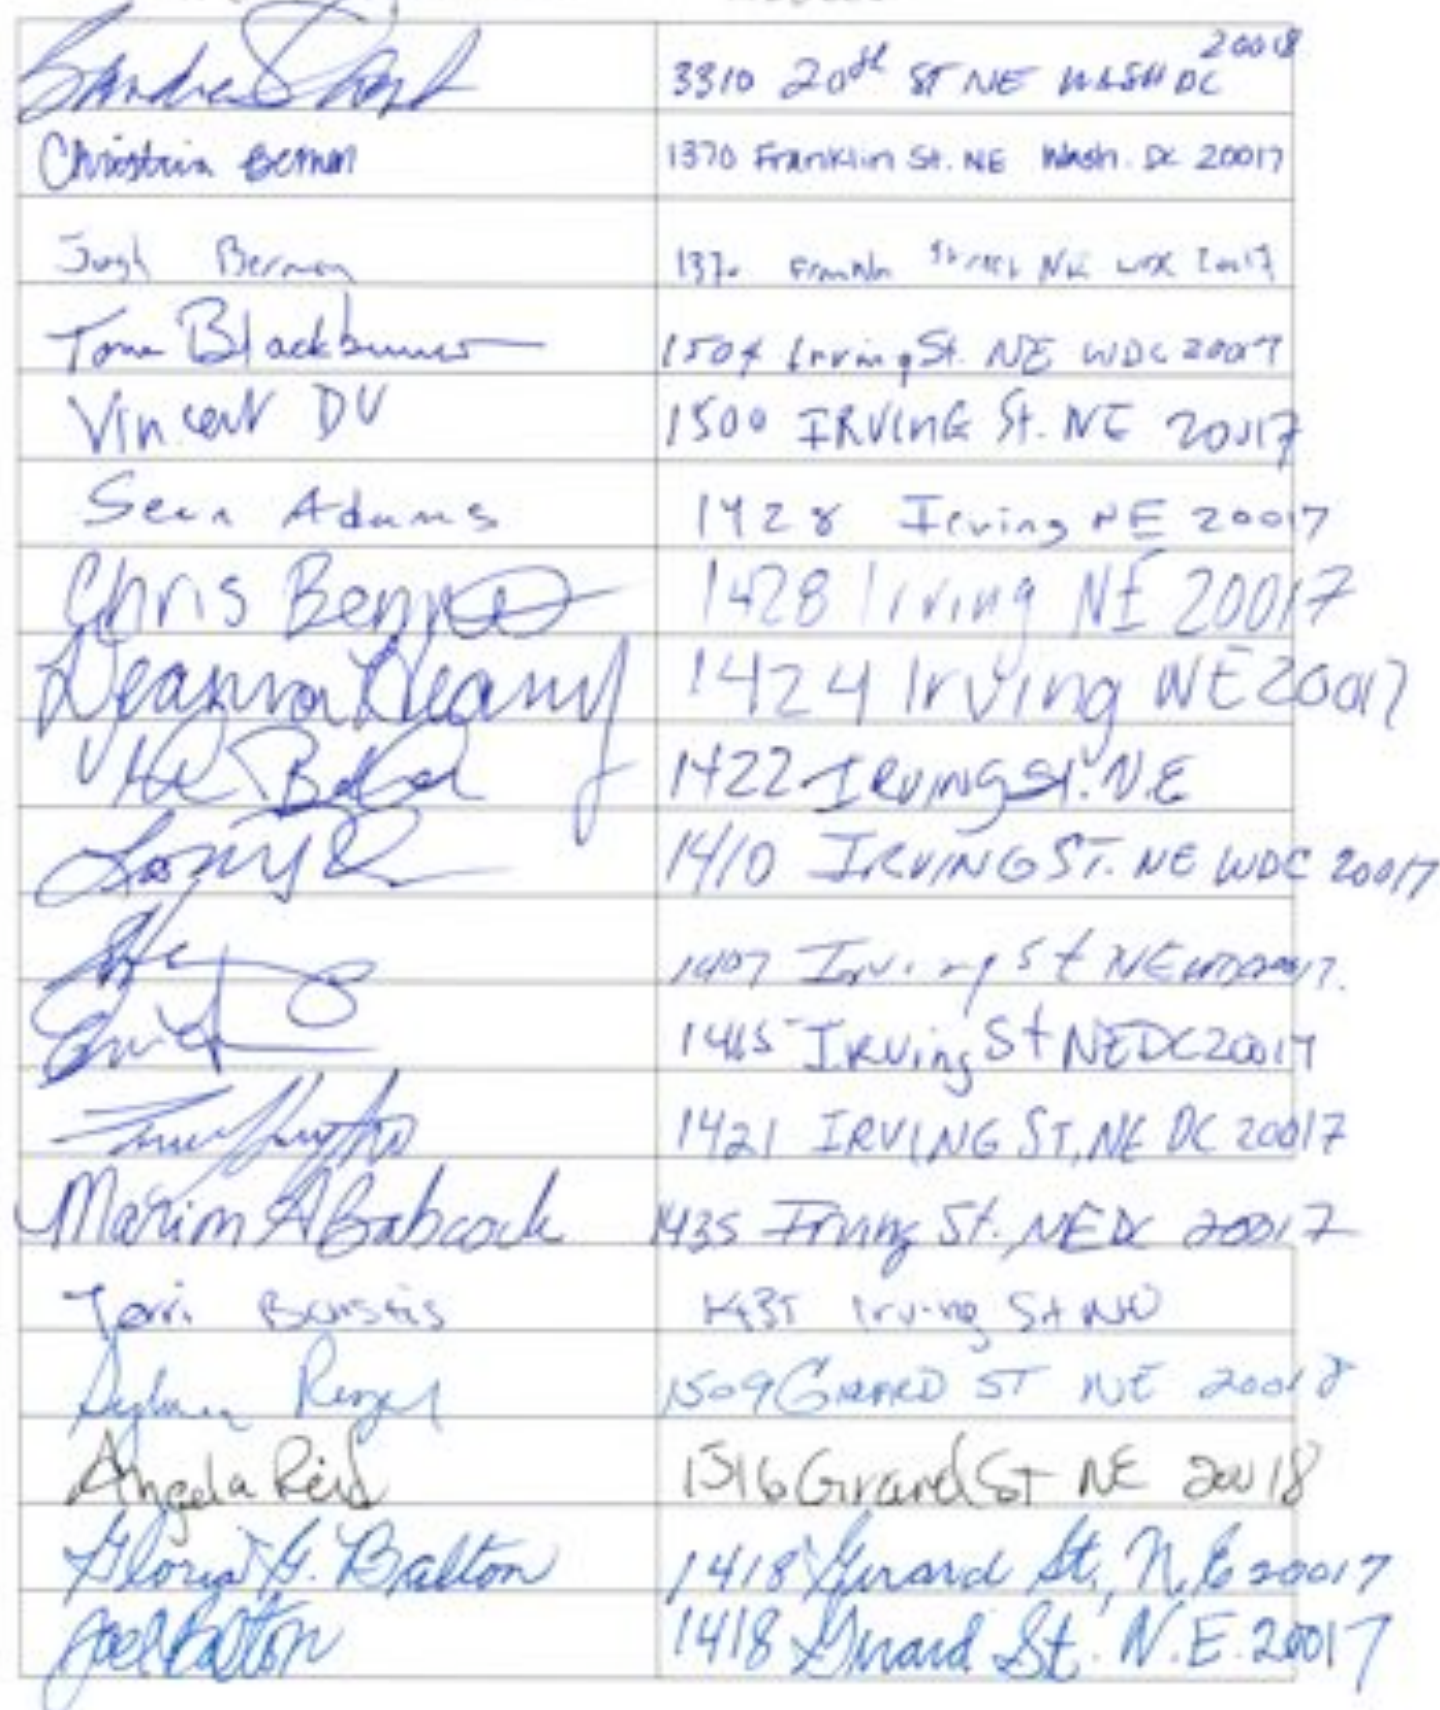 Sandra 3310 20th ST NE WASH DC 20018
Christina Berman 1370 Franklin St. NE Wash. DC 20017
Josh Berman 1370 Franklin Street NE WDC 20017
Tom Blackburn 1504 Irving St. NE WDC 20017
Vincent DU 1500 IRVING St. NE 20017
Sean Adams 1428 Irving NE 20017
Chris Benn 1428 Irving NE 20017
Deanna 1424 Irving NE 20017
1422 IRVING St. N.E
1410 IRVING ST. NE WDC 20017
1407 Irving St NE
Irving St NE DC 20017
1421 IRVING ST, NE DC 20017
A Babcock 1435 Irving St. NE DC 20017
1435 Irving St
1509 GIRARD ST NE 20018
Angela Reid 1516 Girard St NE 20018
Gloria G. Balton 1418 Girard St, N.E 20017
Joel Balton 1418 Girard St. N.E. 20017